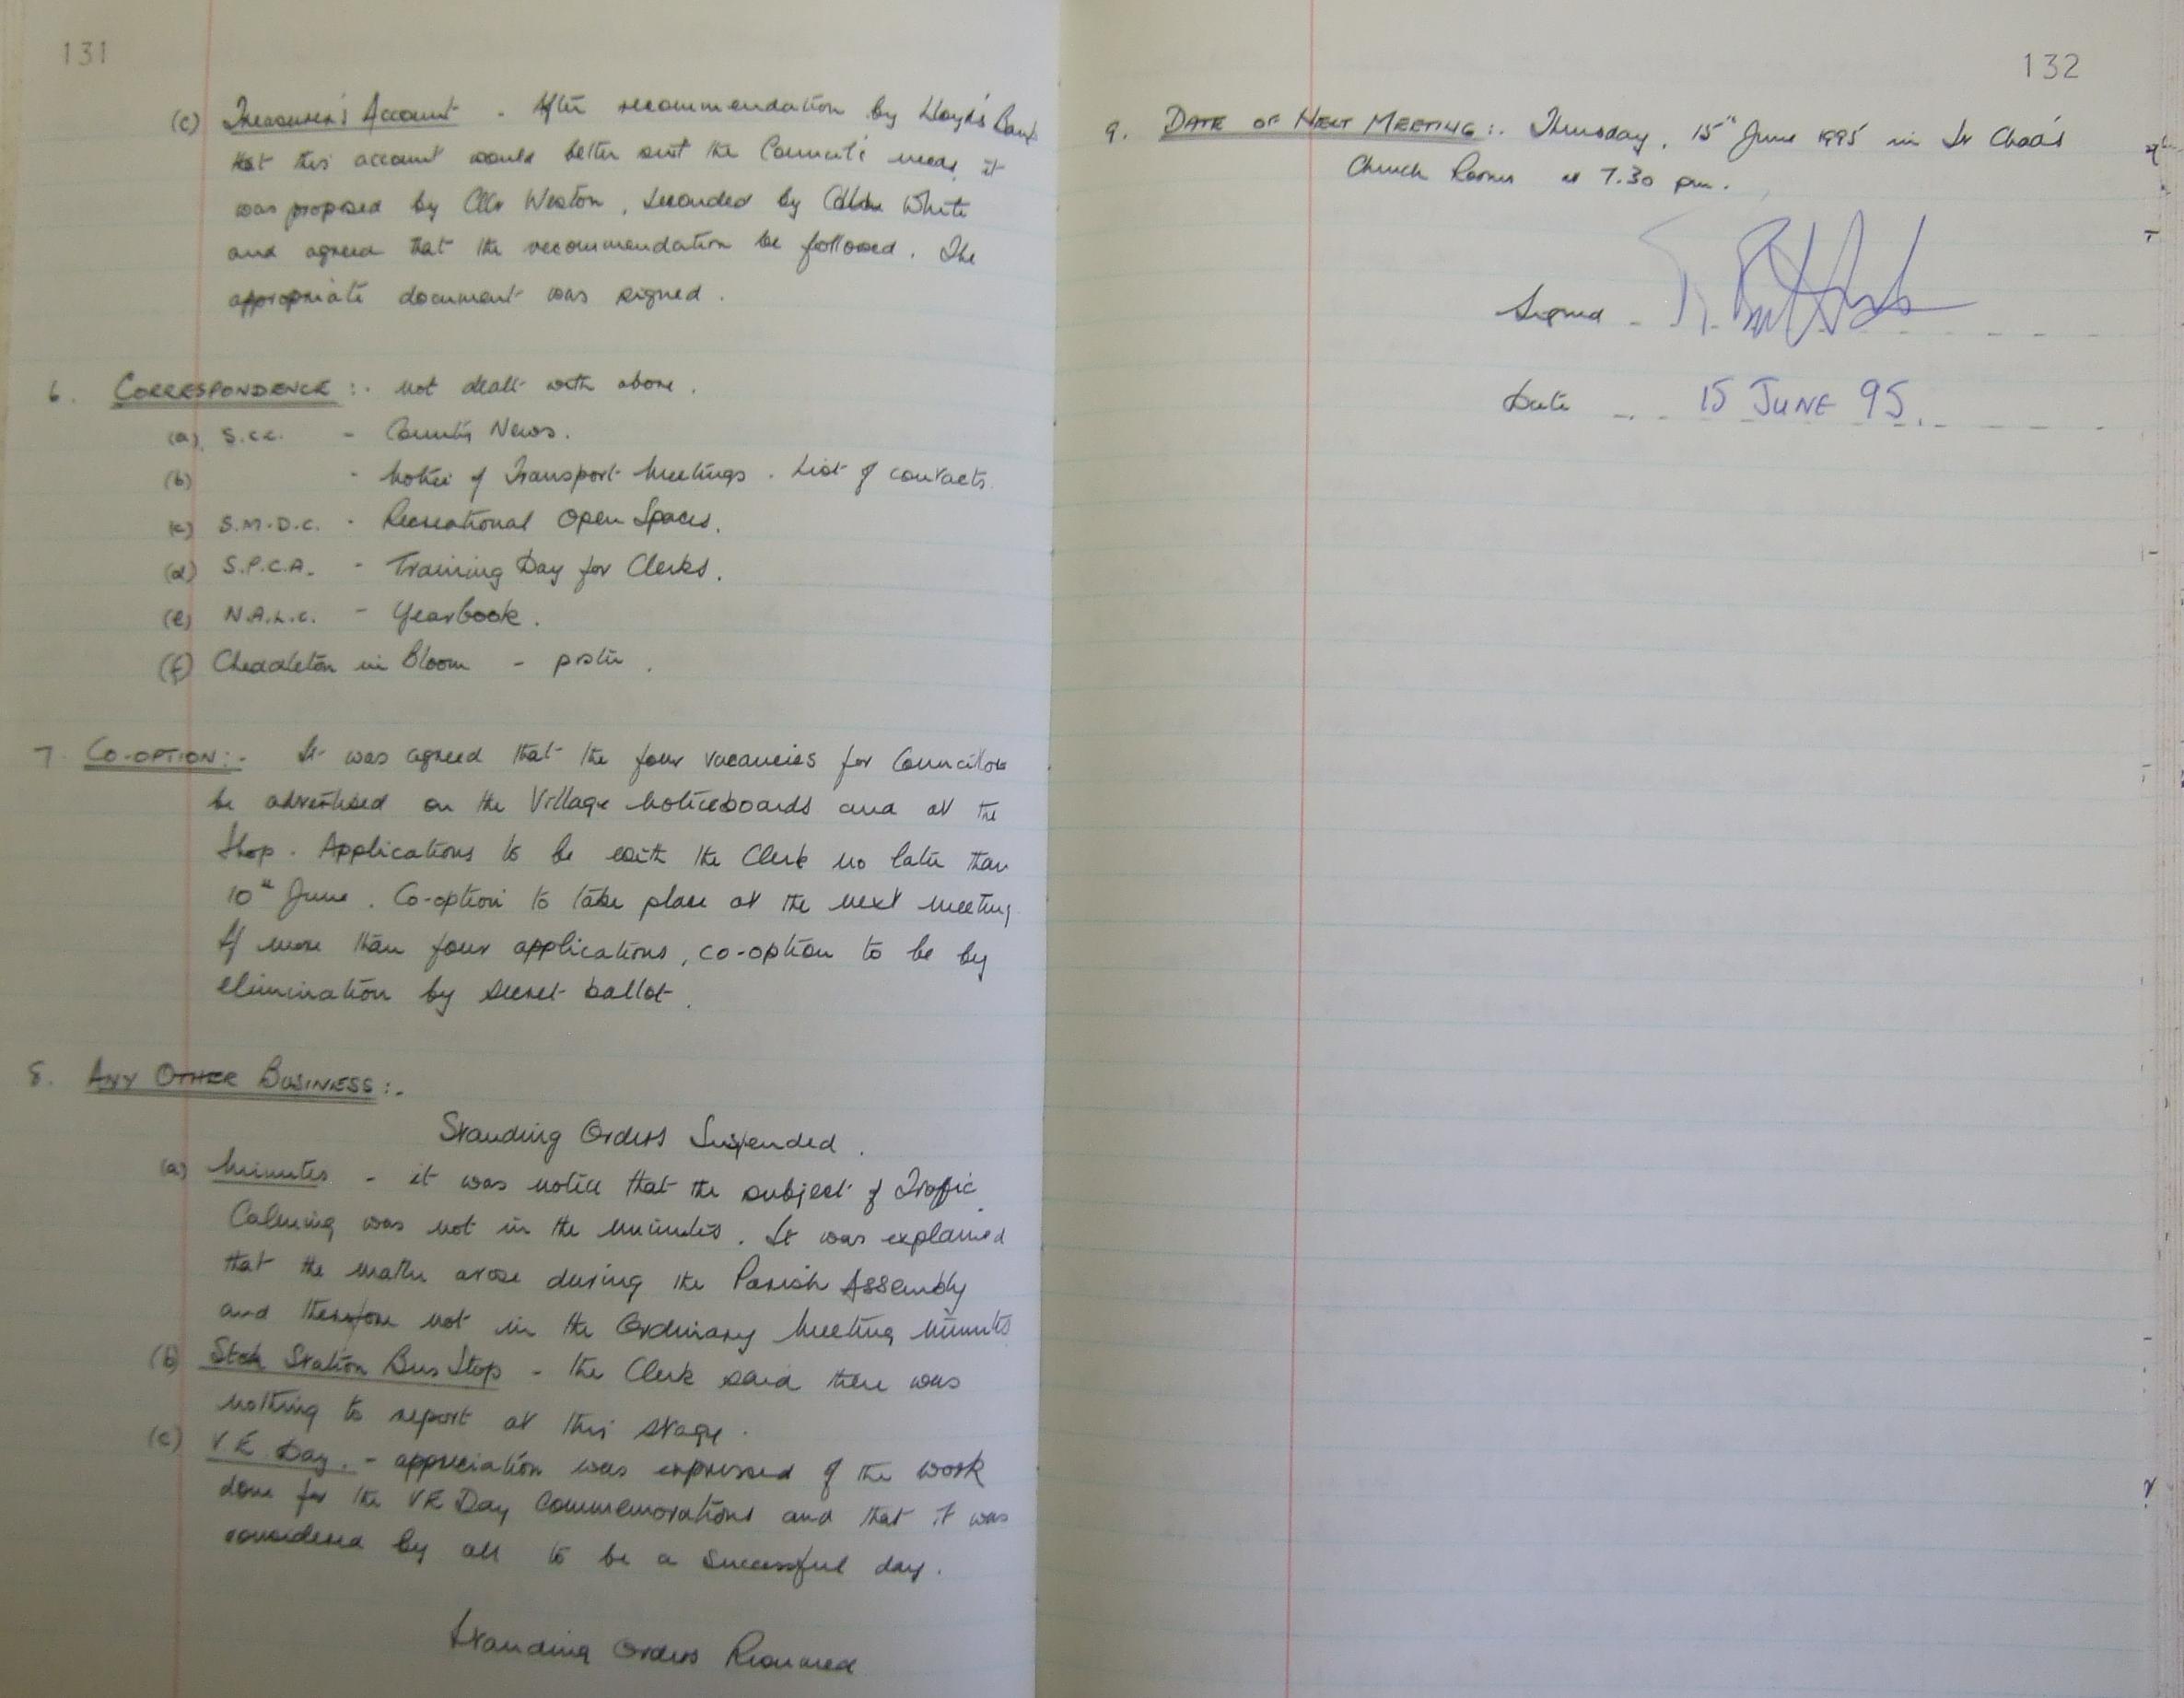 131
(c) Treasurer's Account - After recommendation by Lloyds Bank
that this account would better suit the Council's needs, it
was proposed by Cllr Weston, seconded by Cllr White
and agreed that the recommendation be followed. The
appropriate document was signed.
6. CORRESPONDENCE :- not dealt with above.
(a) S.C.C. - County News.
(b) - Notice of Transport Meetings. List of contacts.
(c) S.M.D.C. - Recreational Open Spaces.
(d) S.P.C.A. - Training Day for Clerks.
(e) N.A.L.C. - Yearbook.
(f) Cheddleton in Bloom - poster.
7. CO-OPTION :- It was agreed that the four vacancies for Councillors
be advertised on the Village Noticeboards and at the
Shop. Applications to be with the Clerk no later than
10th June. Co-option to take place at the next meeting
If more than four applications, co-option to be by
elimination by secret ballot.
8. ANY OTHER BUSINESS :-
Standing Orders Suspended.
(a) Minutes - it was notice that the subject of Traffic
Calming was not in the minutes. It was explained
that the matter arose during the Parish Assembly
and therefore not in the Ordinary Meeting Minutes
(b) Station Bus Stop - the Clerk said there was
nothing to report at this stage.
(c) V E Day. - appreciation was expressed of the work
done for the VE Day Commemorations and that it was
considered by all to be a successful day.
Standing Orders Resumed
132
9. DATE OF NEXT MEETING :- Thursday, 15th June 1995 in St Chad's
Church Rooms at 7.30 pm.
Signed
Date 15 JUNE 95.